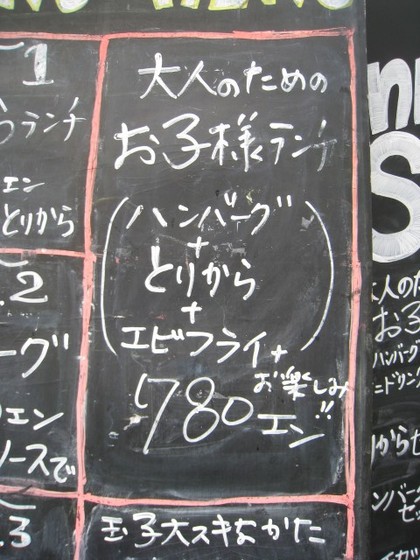 1
ランチ
エン
とりから
.2
ーグ
エン
ソースで
.3
大人のための
お子様ランチ
(ハンバーグ
+
とりから
+
エビフライ+)
お楽しみ!!
780エン
玉子大スキなかた
大人の
お子
ハンバーグ
ニドリン
りから
ンバー
セッ